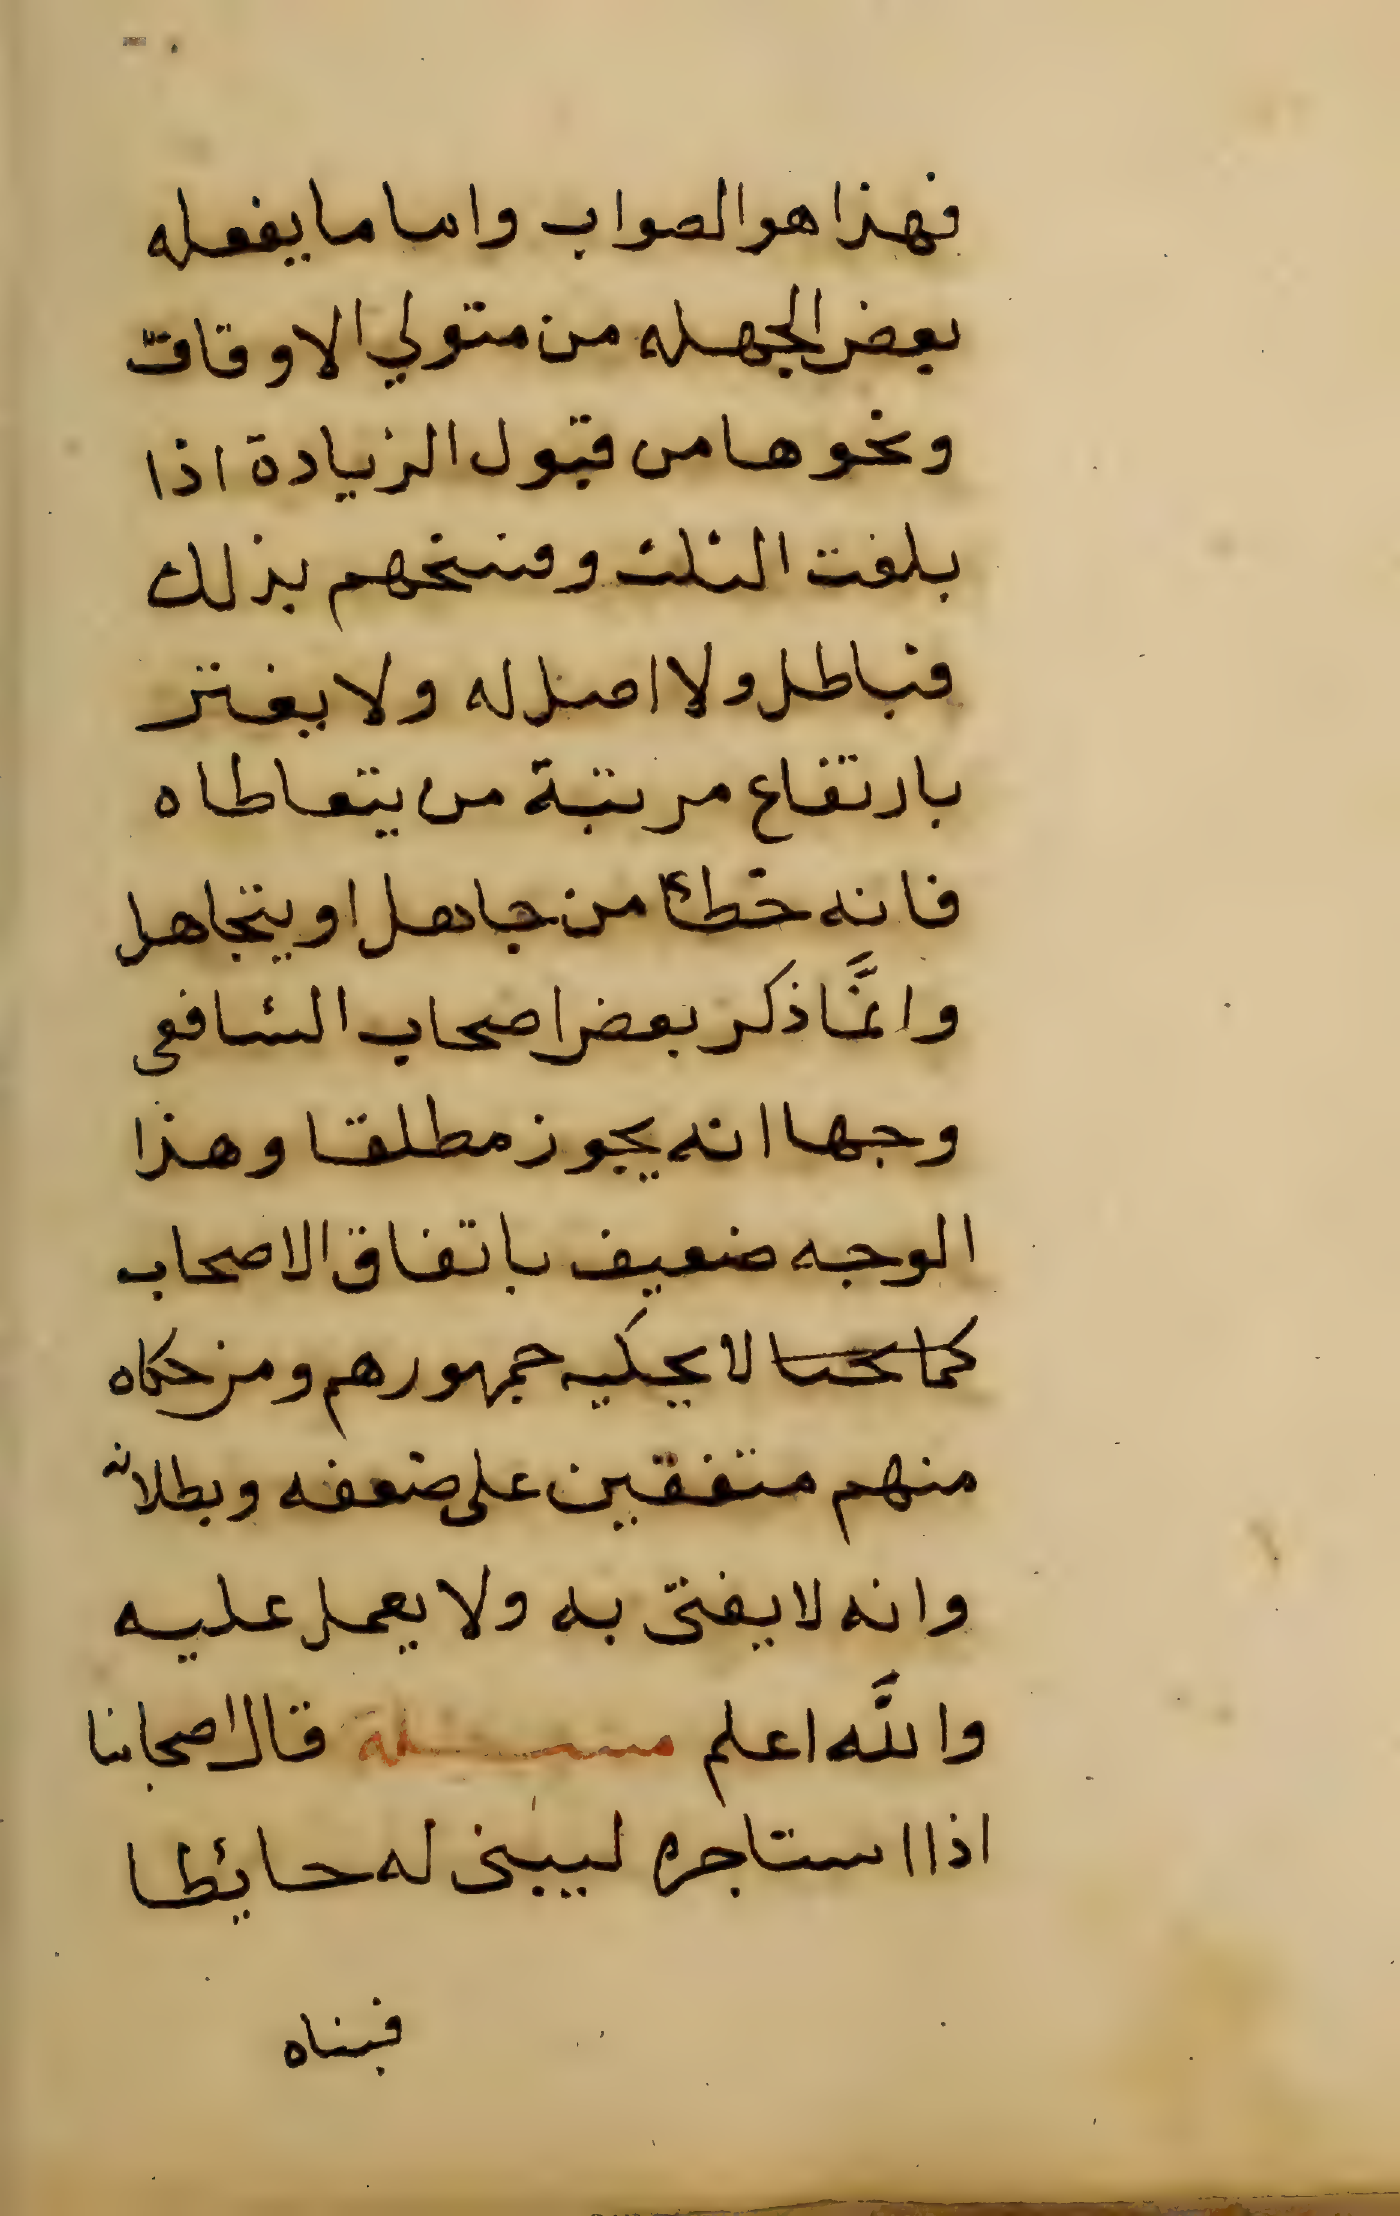 فهذا هو الصواب واما ما يفعله
بعض الجهله من متولي الاوقاف
ونحوها من قبول الزيادة اذا
بلغت الثلث وفسخهم بذلك
فباطل ولا اصل له ولا يغتر
بارتفاع مرتبة من يتعاطاه
فانه خطأ من جاهل او يتجاهل
وانَّما ذكر بعض اصحاب الشافعى
وجها انه يجوز مطلقا وهذا
الوجه ضعيف باتفاق الاصحاب
كما لا يحكيه جمهورهم ومن حكاه
منهم متفقين على ضعفه وبطلانه
وانه لا يفتى به ولا يعمل عليه
واللَّه اعلم مسئلة قال اصحابنا
اذا استاجره ليبنى له حائطا
فبناه